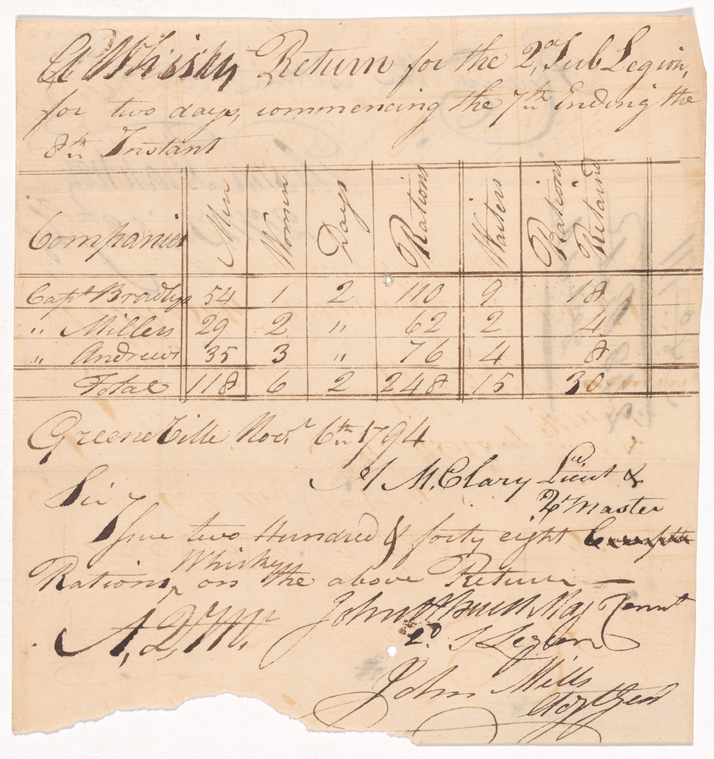 A Whisky Return for the 2d Sub Legion,
for two days, commencing the 7th Ending the
8th Instant
Companies Men Women Days Rations Waiters Rations Retaind
Capt Bradlys 54 1 2 110 9 18
" Millers 29 2 " 62 2 4
" Andrews 35 3 " 76 4 8
Total 118 6 2 248 15 30
Greene Ville Novr 6th 1794
A McClary Lieut &
Qr Master
Sir
Issue two Hundred & forty eight
Rations Whisky on the above Return
A, D, Q, Mr John Maj Commt
2d S Legion
John Mills
Adjt Genl